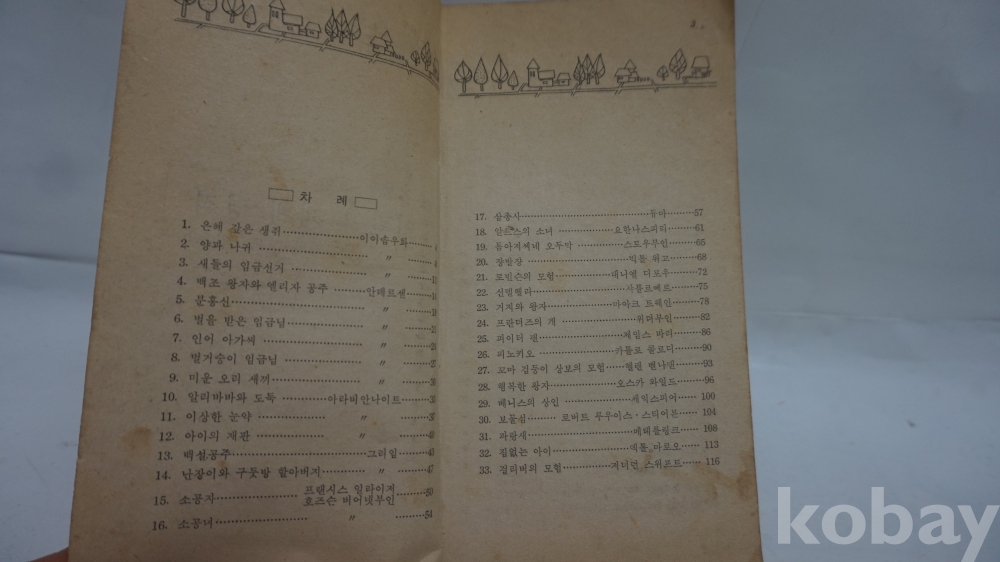 차 례
1. 은혜 같은 생쥐 이이솝우화
2. 양과 나귀 〃
3. 새들의 임금선거 〃
4. 백조 왕자와 엘리자 공주 안데르센
5. 문홍선 〃
6. 벌을 받은 임금님 〃
7. 인어 아가씨 〃
8. 벌거숭이 임금님 〃 27
9. 미운 오리 새끼 〃
10. 알리바바와 도둑 아라비안나이트
11. 이상한 눈약 〃
12. 아이의 재판 〃
13. 백설공주 그리임
14. 난장이와 구둣방 할아버지 〃 47
15. 소공자 프랜시스 일라이저 호즈슨 버어넷부인 50
16. 소공녀 〃 54
3
17. 삼총사 뒤마 57
18. 알프스의 소녀 요한나스피리 61
19. 톰아저씨네 오두막 스토우부인 65
20. 장발장 빅톨 위고 68
21. 로빈슨의 모험 대니엘 더포우 72
22. 신델렐라 샤를르뻬르 75
23. 거지와 왕자 마아크 트웨인 78
24. 프란더즈의 개 위더부인 82
25. 피이터 팬 제임스 바리 86
26. 피노키오 카를로 콜로디 90
27. 꼬마 검둥이 삼보의 모험 헬렌 밴나맨 93
28. 행복한 왕자 오스카 와일드 96
29. 베니스의 상인 섹익스피어 100
30. 보물섬 로버트 루우이스·스티어븐 104
31. 파랑새 메테를링크 108
32. 집없는 아이 엑톨·마르오 113
33. 걸리버의 모험 저너던 스위프트 116
kobay